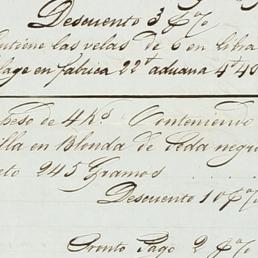 Descuento 3 p%
ntiene las velas de 6 en libra
lage en fabrica 22 aduana 4 40
peso de 4 Ks Conteniendo
illa en Blonda de Seda negr
eto 245 Gramos . . . .
Descuento 10 p%
Pronto Pago 2 p%